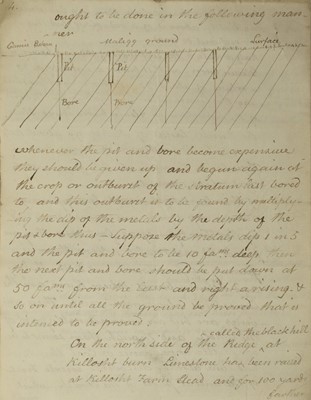 ought to be done in the following man-
ner
Metaly ground
Surface
Pit
Pit
Bore
Bore
whenever the pit and bore become expensive
they should be given up and begun again at
the crop or outburst of the stratum last bored
to and this outburst is to be found by multiply-
ing the dip of the metals by the depth of the
pit & bore thus – Suppose the metals dip 1 in 5
and the pit and bore to be 10 fams deep then
the next pit and bore should be put down at
50 fams from the last and right a rising &
so on until all the ground be proved that is
intended to be proved.
called the black hill
On the north side of the Ridge at
Killosht burn Limestone has been raised
at Killosht Farm Stead and for 100 yards
farther